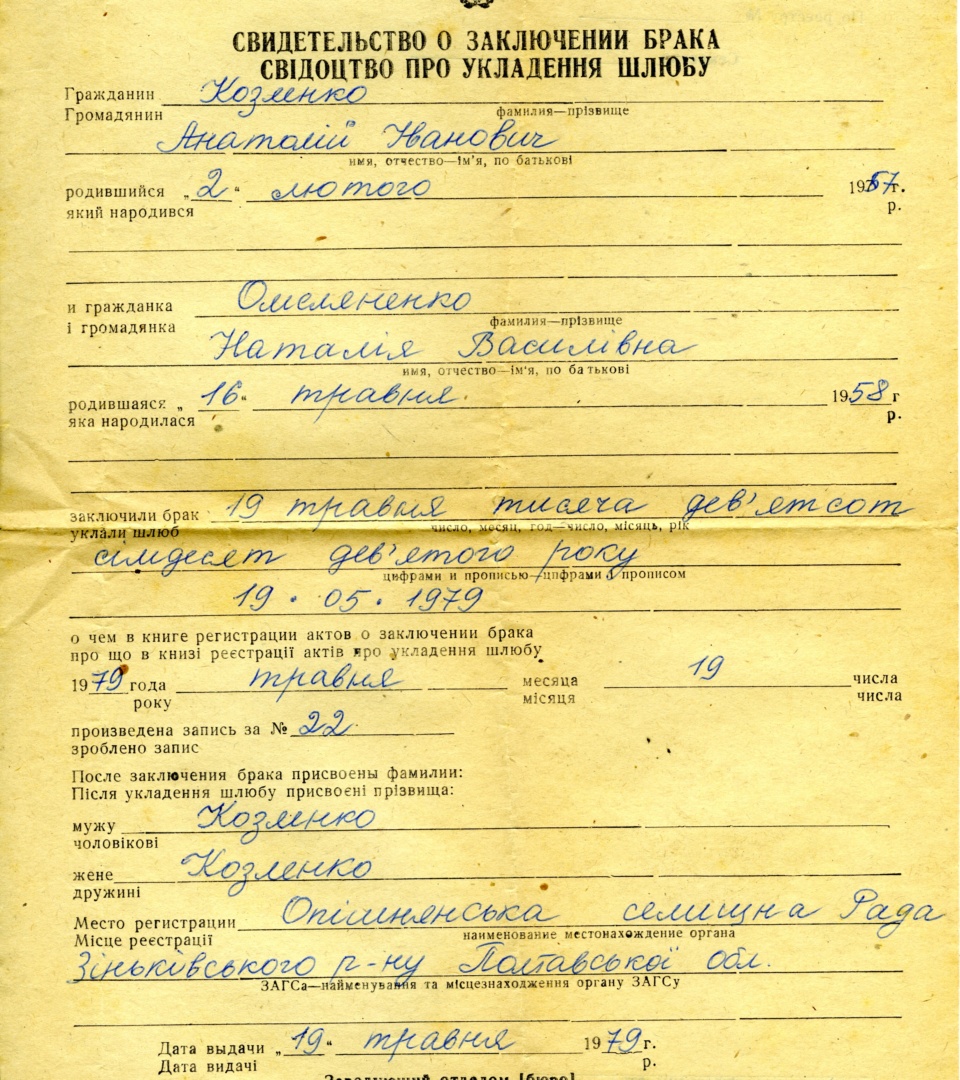 СВИДЕТЕЛЬСТВО О ЗАКЛЮЧЕНИИ БРАКА
СВІДОЦТВО ПРО УКЛАДЕННЯ ШЛЮБУ
Гражданин Козленко
Громадянин фамилия—прізвище
Анатолій Іванович
имя, отчество—ім'я, по батькові
родившийся „2“ лютого 1957г.
який народився р.
и гражданка Омеляненко
і громадянка фамилия—прізвище
Наталія Василівна
имя, отчество—ім'я, по батькові
родившаяся „16“ травня 1958г
яка народилася р.
заключили брак 19 травня тисяча дев'ятсот
уклали шлюб число, месяц, год—число, місяць, рік
сімдесят дев'ятого року
цифрами и прописью—цифрами і прописом
19.05.1979
о чем в книге регистрации актов о заключении брака
про що в книзі реєстрації актів про укладення шлюбу
1979 года травня месяца 19 числа
року місяця числа
произведена запись за № 22
зроблено запис
После заключения брака присвоены фамилии:
Після укладення шлюбу присвоєні прізвища:
мужу Козленко
чоловікові
жене Козленко
дружині
Место регистрации Опішнянська селищна Рада
Місце реєстрації наименование местонахождение органа
Зіньківського р-ну Полтавської обл.
ЗАГСа—найменування та місцезнаходження органу ЗАГСу
Дата выдачи „19“ травня 1979г.
Дата видачі р.
Заведующий отделом [бюро]